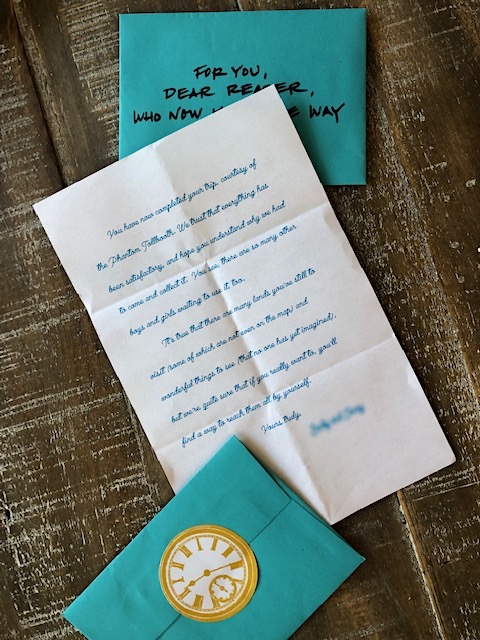 FOR YOU,
DEAR READER,
WHO NOW THE WAY
You have now completed your trip, courtesy of
the Phantom Tollbooth. We trust that everything has
been satisfactory, and hope you understand why we had
to come and collect it. You see, there are so many other
boys and girls waiting to use it, too.
(It's true that there are many lands you've still to
visit (some of which are not even on the map) and
wonderful things to see (that no one has yet imagined),
but we're quite sure that if you really want to, you'll
find a way to reach them all by yourself.
Yours truly,